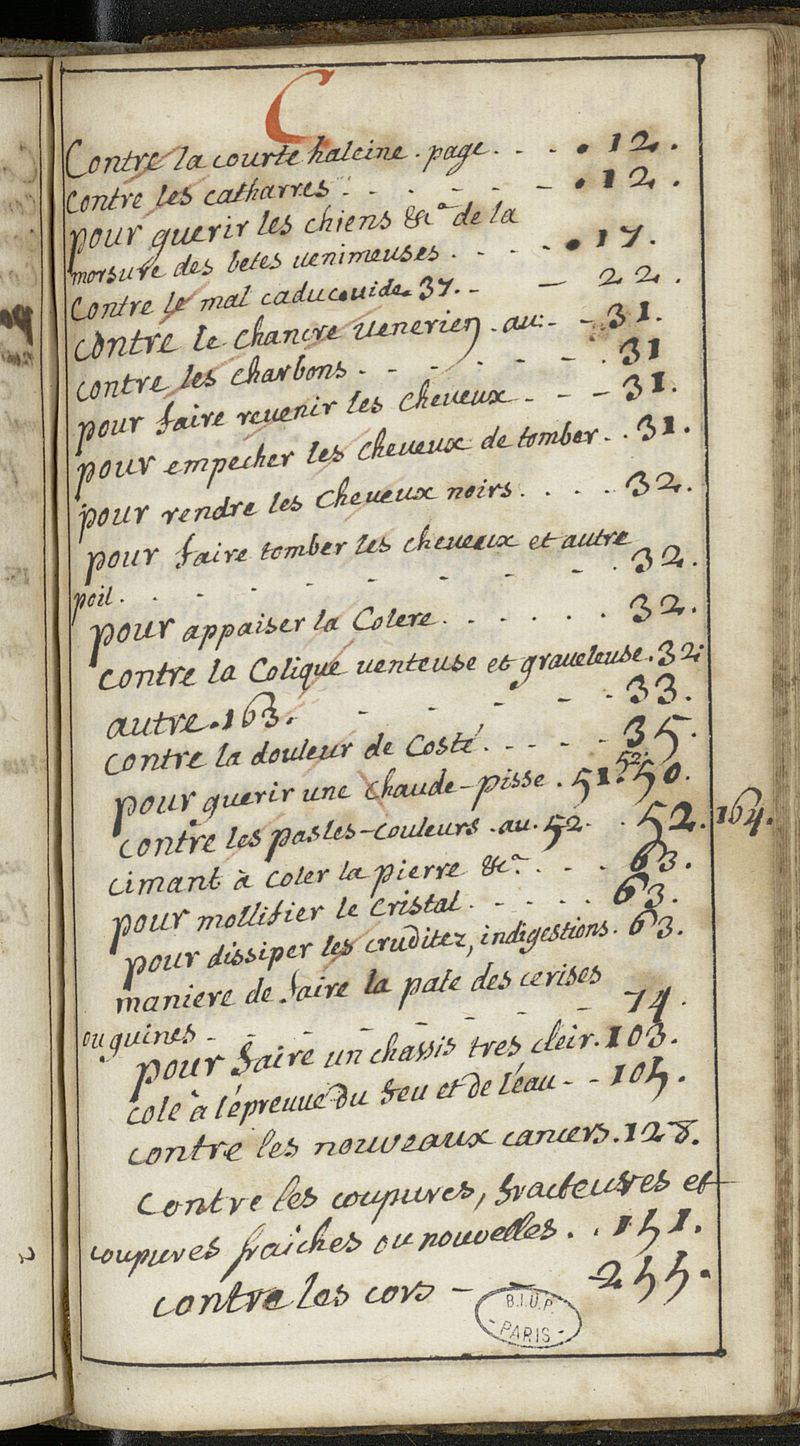 C
Contre la courte haleine . page. . - . 12.
contre les catharres . - - - - - . 12.
pour guerir les chiens &c.a de la
morsure des betes uenimeuses . - - - . 17.
Contre le mal caduc. uide. 37. - - 22.
contre le chancre uenerien . au: - - 31.
contre les charbons . - - - - - . 31
pour faire reuenir les cheueux - - - 31.
pour empecher les cheueux de tomber - . 31.
pour rendre les cheueux noirs . . . . 32.
pour faire tomber les cheueux et autre
poil . . - - - - - - - . 32.
pour appaiser la Colere . . . . . . 32.
contre la Colique uenteuse et graueleuse . 32;
autre . 163. - - - - - 33.
contre la douleur de Costé . - - - - 35.
pour guerir une chaude-pisse . 51. 52. 50.
contre les pasles-couleurs . au . 52. . 52. 164.
cimant à coler la pierre &c.a . - . . 63.
pour mollifier le Cristal . - . . . . 63.
pour dissiper les cruditez, indigestions . 63.
maniere de faire la pate des cerises
ou guines - - - - - - - 74.
pour faire un chassis tres cleir . 103.
cole à l'épreuue du feu et de l'éau - - 105.
contre les nouveaux cancers . 128.
Contre les coupures, fracteures et
coupures fraîches ou nouvelles . . 151.
contre les cors - - 255.
B.I.U.P.
- PARIS -